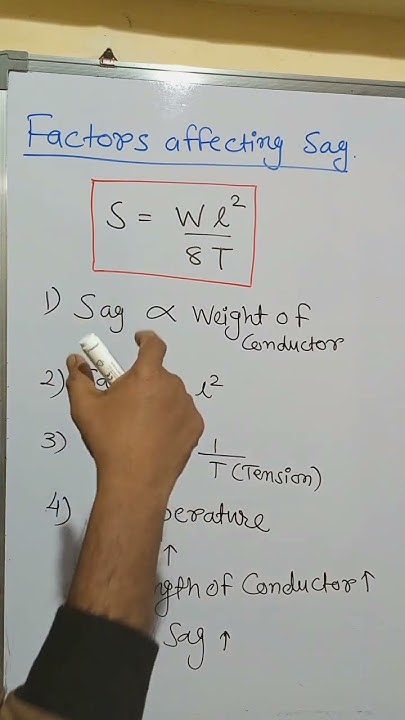 Factors affecting Sag.
S = W l²
8 T
1) Sag ∝ Weight of
Conductor
2) l²
3) 1
T (Tension)
4)
↑
of Conductor ↑
Sag ↑